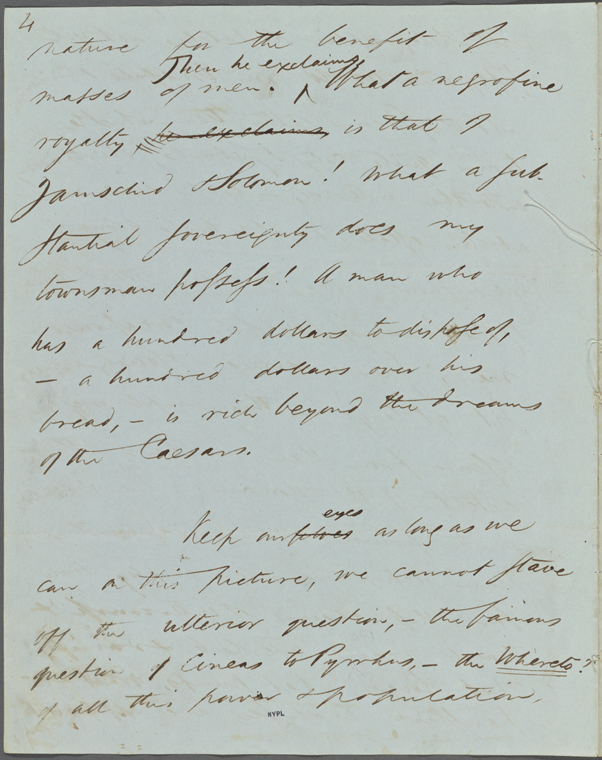 4
nature for the benefit of
Then he exclaims
masses of men. ^ What a negrofine
royalty, he exclaims, is that of
Jamschid & Solomon! What a sub-
stantial sovereignty does my
townsman possess! A man who
has a hundred dollars to dispose of,
— a hundred dollars over his
bread, — is rich beyond the dreams
of the Caesars.
eyes
Keep our selves as long as we
can on this picture, we cannot stave
off the ulterior question, — the famous
question of Cineas to Pyrrhus, — the Whereto?
of all this power & population,
NYPL